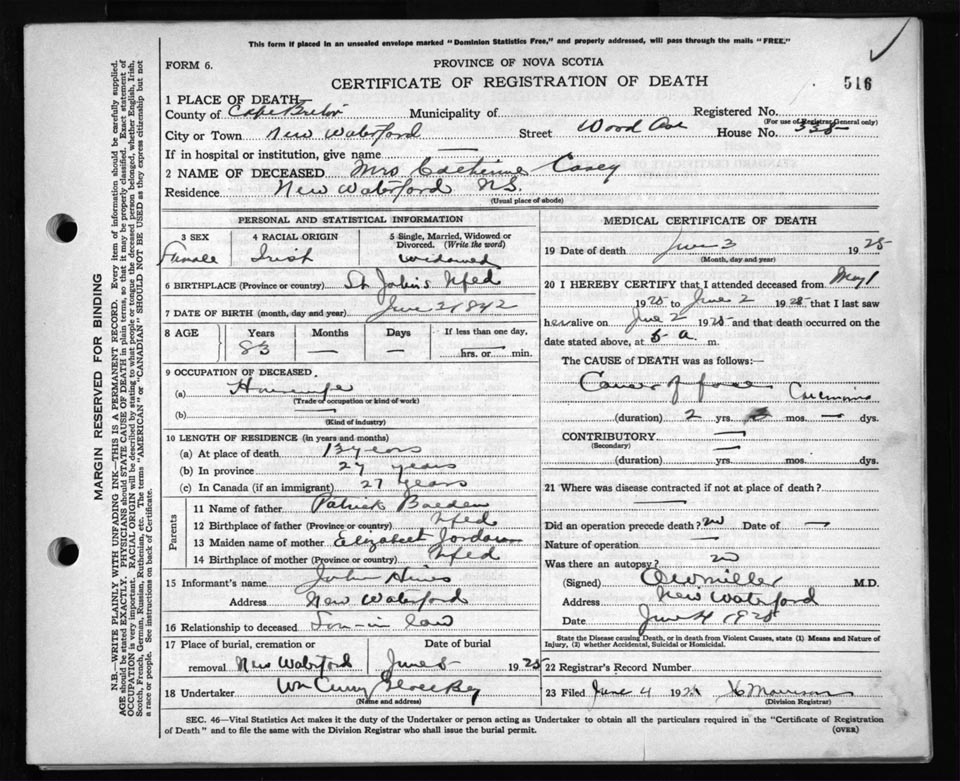 This form if placed in an unsealed envelope marked "Dominion Statistics Free," and properly addressed, will pass through the mails "FREE."
FORM 6. PROVINCE OF NOVA SCOTIA
CERTIFICATE OF REGISTRATION OF DEATH 516
1 PLACE OF DEATH—
County of Cape Breton Municipality of Registered No.
(For use of Registrar General only)
City or Town New Waterford Street Wood Ave House No. 335
If in hospital or institution, give name —
2 NAME OF DECEASED Mrs Catherine Casey
Residence New Waterford N.S.
(Usual place of abode)
PERSONAL AND STATISTICAL INFORMATION
3 SEX 4 RACIAL ORIGIN 5 Single, Married, Widowed or Divorced. (Write the word)
Female Irish Widowed
6 BIRTHPLACE (Province or country) St John's Nfed
7 DATE OF BIRTH (month, day and year) June 2 1842
8 AGE Years Months Days If less than one day,
83 — — hrs. or min.
9 OCCUPATION OF DECEASED.
(a) Housewife
(Trade or occupation or kind of work)
(b) —
(Kind of industry)
10 LENGTH OF RESIDENCE (in years and months)
(a) At place of death 13 years
(b) In province 27 years
(c) In Canada (if an immigrant) 27 years
Parents
11 Name of father Patrick
12 Birthplace of father (Province or country) Nfed
13 Maiden name of mother Elizabeth Jordan
14 Birthplace of mother (Province or country) Nfed
15 Informant's name John Hines
Address New Waterford
16 Relationship to deceased Son-in law
17 Place of burial, cremation or removal New Waterford Date of burial June 5 1925
18 Undertaker Wm Curry Glace Bay
(Name and address)
MEDICAL CERTIFICATE OF DEATH
19 Date of death June 3 1925
(Month, day and year)
20 I HEREBY CERTIFY that I attended deceased from May 1
1925 to June 2 1925 that I last saw
her alive on June 2 1925 and that death occurred on the
date stated above, at 5 a. m.
The CAUSE of DEATH was as follows:—
Cancer of face
(duration) 2 yrs. mos. — dys.
CONTRIBUTORY —
(Secondary)
(duration) — yrs. mos. dys.
21 Where was disease contracted if not at place of death?
—
Did an operation precede death? no Date of —
Nature of operation —
Was there an autopsy? no
(Signed) O W Miller M.D.
Address New Waterford
Date June 4 1925
State the Disease causing Death, or in death from Violent Causes, state (1) Means and Nature of
Injury, (2) whether Accidental, Suicidal or Homicidal.
22 Registrar's Record Number
23 Filed June 4 192 Morrison
(Division Registrar)
SEC. 46—Vital Statistics Act makes it the duty of the Undertaker or person acting as Undertaker to obtain all the particulars required in the "Certificate of Registration
of Death" and to file the same with the Division Registrar who shall issue the burial permit. (OVER)
MARGIN RESERVED FOR BINDING
N.B.—WRITE PLAINLY WITH UNFADING INK—THIS IS A PERMANENT RECORD. Every item of information should be carefully supplied.
AGE should be stated EXACTLY. PHYSICIANS should STATE CAUSE OF DEATH in plain terms, so that it may be properly classified. Exact statement of
OCCUPATION is very important. RACIAL ORIGIN will be described by stating to what people or tongue the deceased person belonged, whether English, Irish,
Scotch, French, German, Russian, Ruthenian, etc. The terms "AMERICAN" or "CANADIAN" SHOULD NOT BE USED as they express citizenship but not
a race or people. See instructions on back of Certificate.